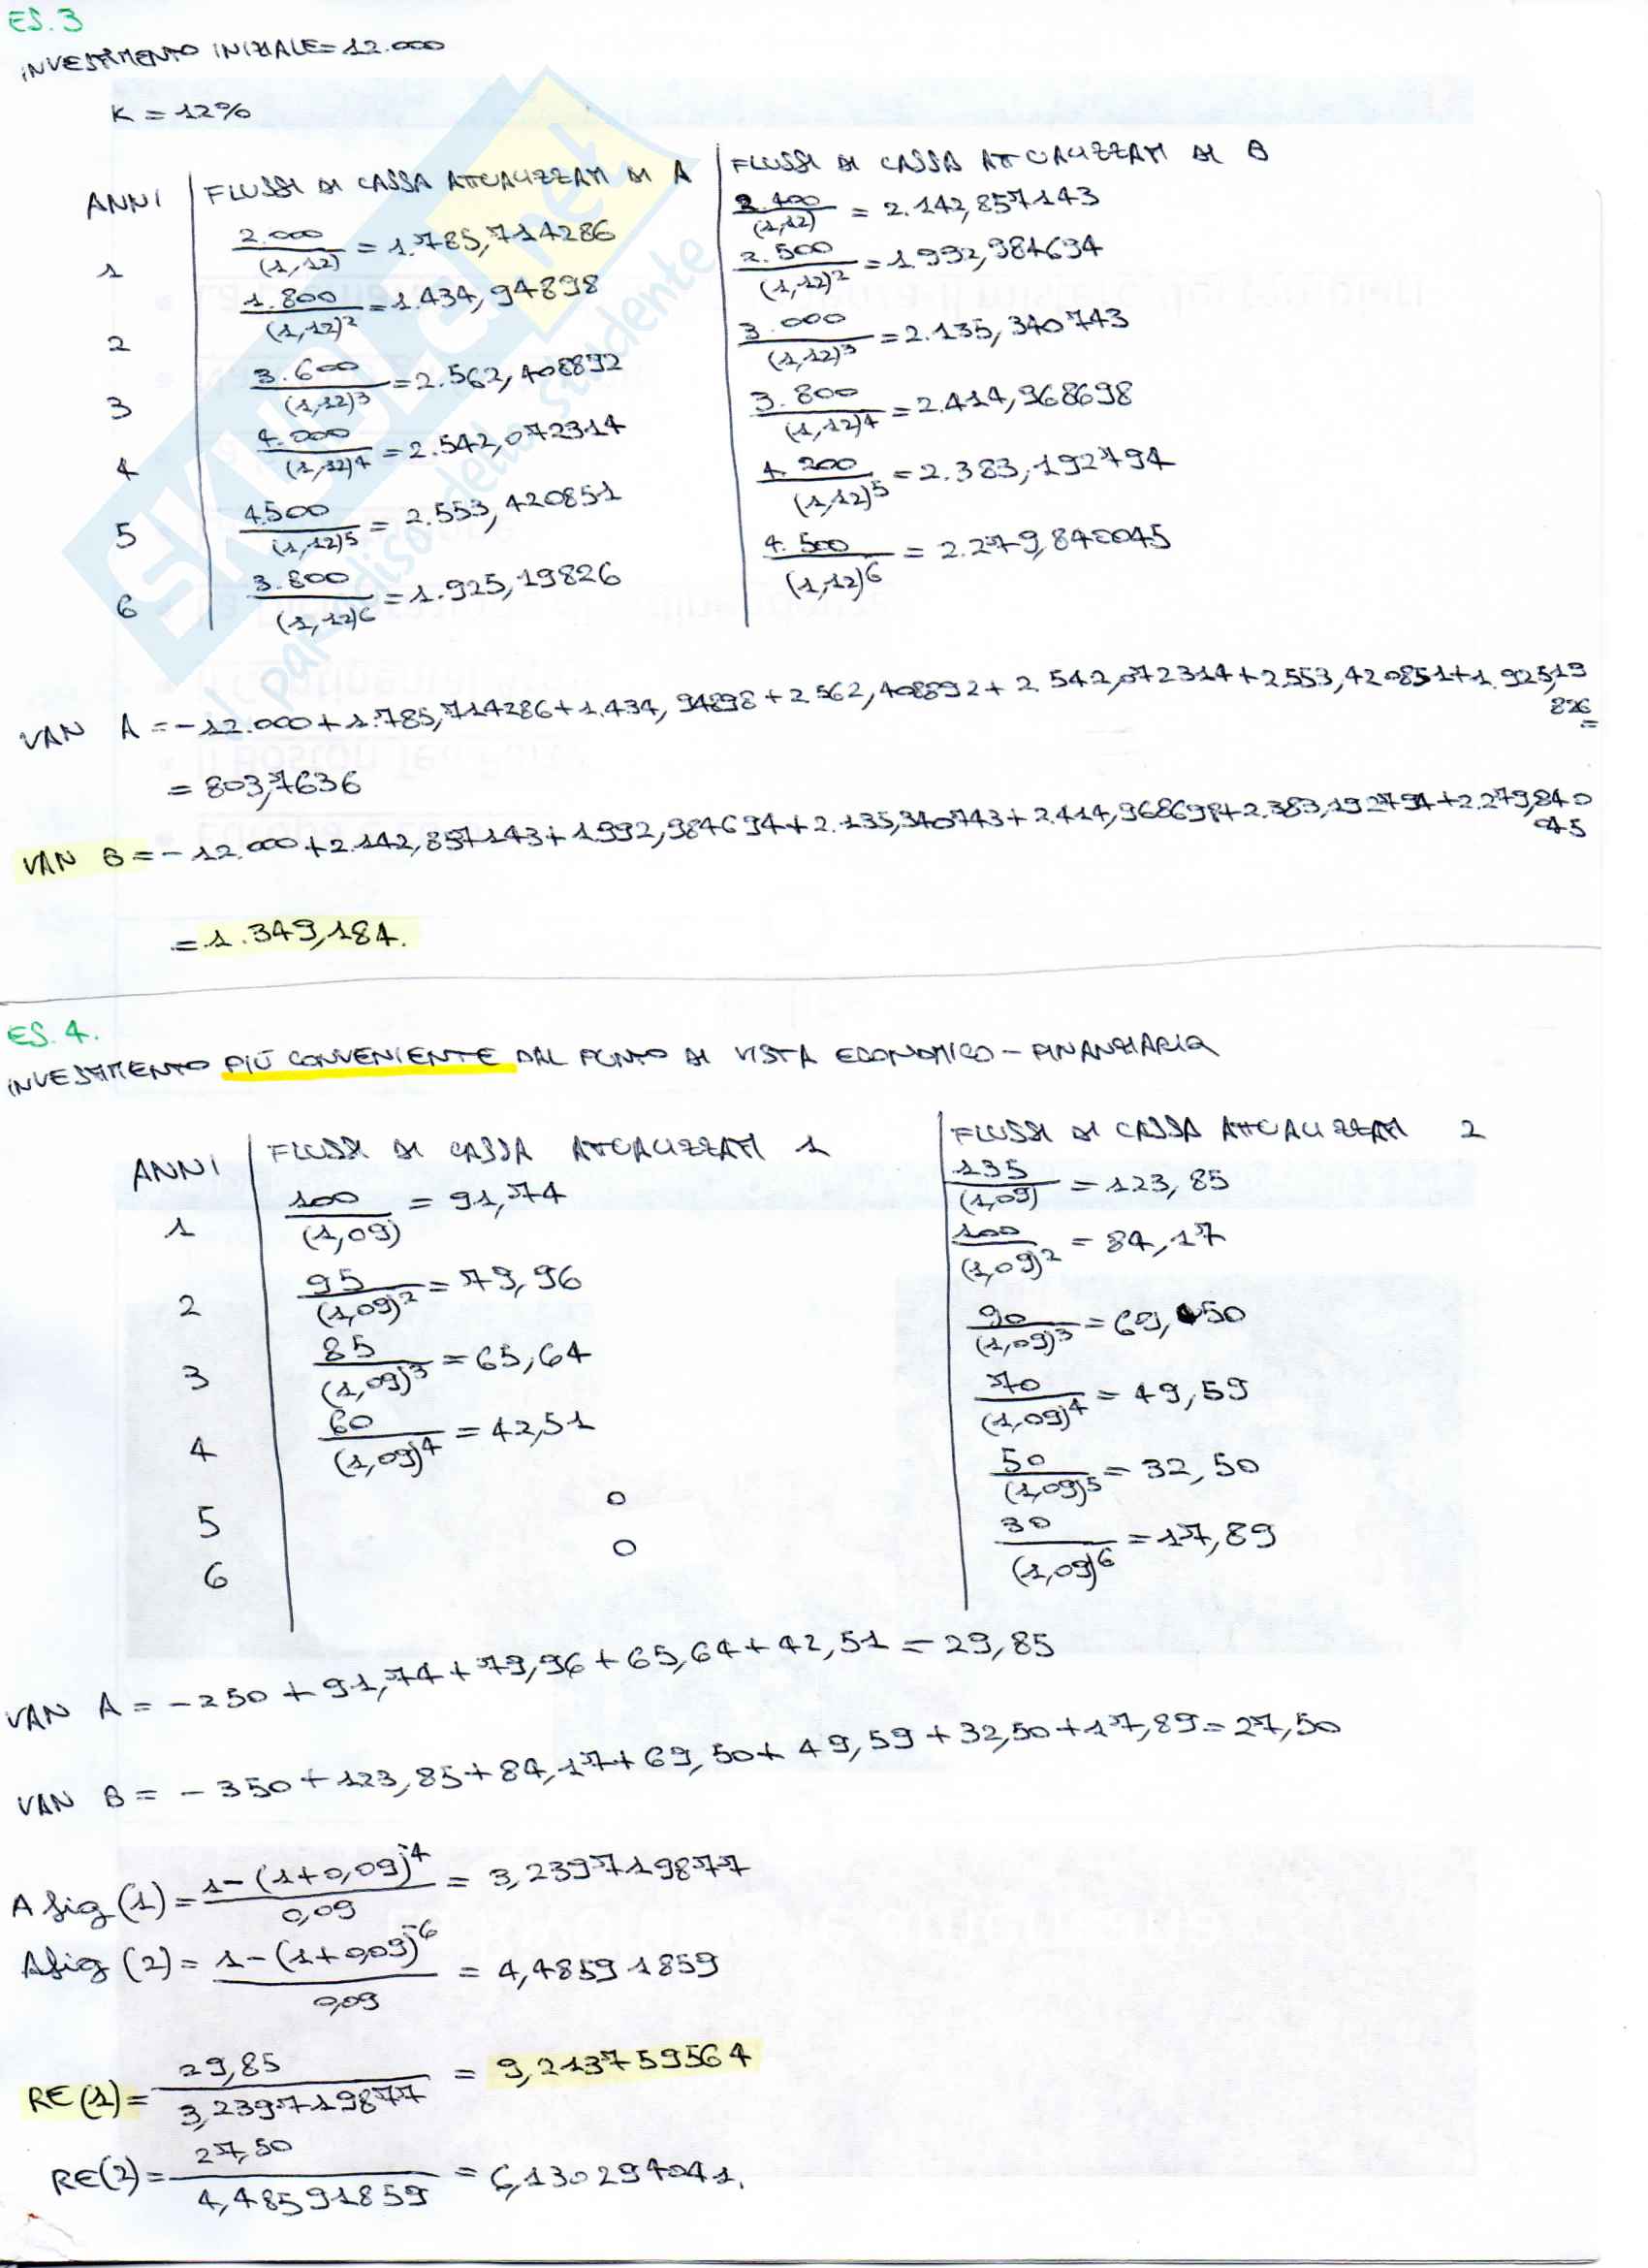 ES. 3
INVESTIMENTO INIZIALE= 12.000
K = 12%
ANNI | FLUSSI DI CASSA ATTUALIZZATI DI A | FLUSSI DI CASSA ATTUALIZZATI DI B
1 | 2.000/(1,12) = 1.785,714286 | 2.400/(1,12) = 2.142,857143
2 | 1.800/(1,12)² = 1.434,94898 | 2.500/(1,12)² = 1992,984694
3 | 3.600/(1,12)³ = 2.562,408892 | 3.000/(1,12)³ = 2.135,340743
4 | 4.000/(1,12)⁴ = 2.542,072314 | 3.800/(1,12)⁴ = 2.414,968698
5 | 4.500/(1,12)⁵ = 2.553,420851 | 4.200/(1,12)⁵ = 2.383,192794
6 | 3.800/(1,12)⁶ = 1.925,19826 | 4.500/(1,12)⁶ = 2.279,840045
VAN A = -12.000 + 1.785,714286 + 1.434,94898 + 2.562,408892 + 2.542,072314 + 2.553,420851 + 1.925,19
826
=
= 803,7636
VAN B = -12.000 + 2.142,857143 + 1992,984694 + 2.135,340743 + 2.414,968698 + 2.383,192794 + 2.279,840
045
= 1.349,184.
ES. 4.
INVESTIMENTO PIÚ CONVENIENTE DAL PUNTO DI VISTA ECONOMICO - FINANZIARIO
ANNI | FLUSSI DI CASSA ATTUALIZZATI 1 | FLUSSI DI CASSA ATTUALIZZATI 2
1 | 100/(1,09) = 91,74 | 135/(1,09) = 123,85
2 | 95/(1,09)² = 79,96 | 100/(1,09)² = 84,17
3 | 85/(1,09)³ = 65,64 | 90/(1,09)³ = 69,50
4 | 60/(1,09)⁴ = 42,51 | 70/(1,09)⁴ = 49,59
5 | 0 | 50/(1,09)⁵ = 32,50
6 | 0 | 30/(1,09)⁶ = 17,89
VAN A = -250 + 91,74 + 79,96 + 65,64 + 42,51 = 29,85
VAN B = -350 + 123,85 + 84,17 + 69,50 + 49,59 + 32,50 + 17,89 = 27,50
A fig (1) = 1-(1+0,09)⁻⁴/0,09 = 3,239719877
A fig (2) = 1-(1+0,09)⁻⁶/0,09 = 4,48591859
RE(1) = 29,85/3,239719877 = 9,213759564
RE(2) = 27,50/4,48591859 = 6,130294041.
SKUOLA.net
il paradiso dello studente